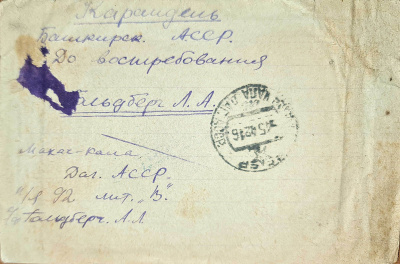 Караидель
Башкирск. АССР.
До востребования
Гольдберг Л. А.
Махач-Кала
Даг. АССР.
п/я 92 лит. „В."
Гольдберг. Л. Л.